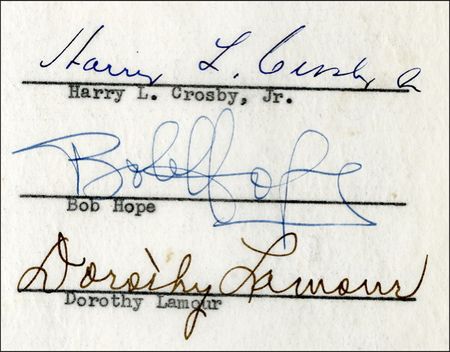 Harry L. Crosby Jr
Harry L. Crosby, Jr.
Bob Hope
Bob Hope
Dorothy Lamour
Dorothy Lamour